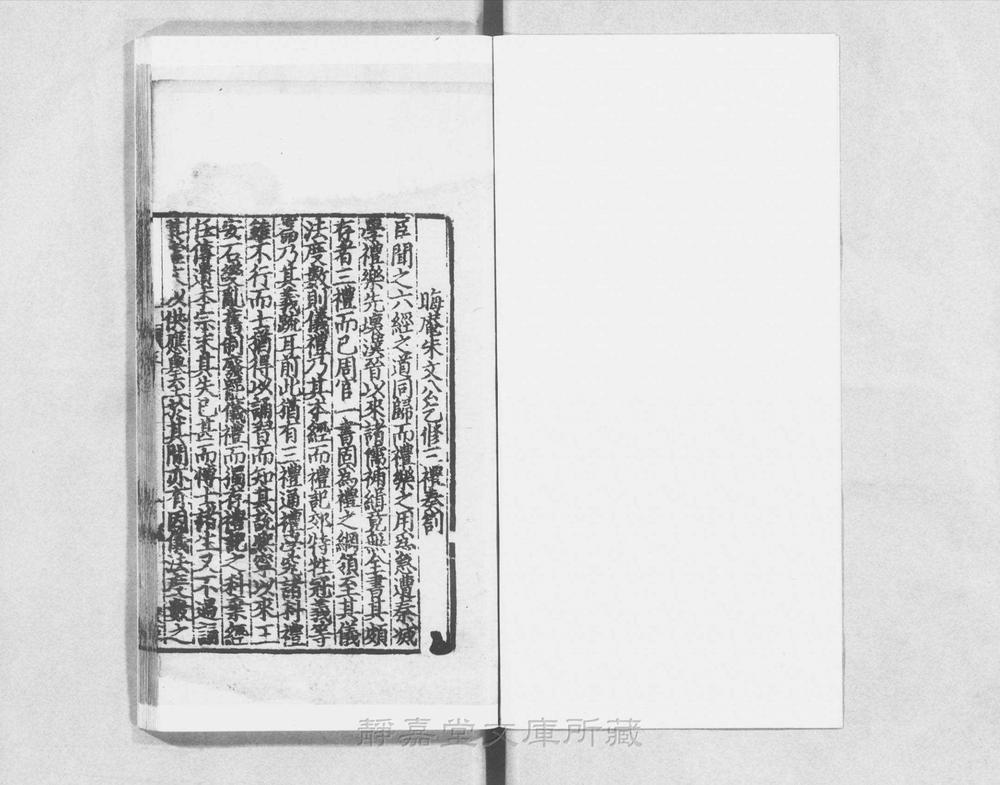 晦庵朱文公乞修三禮奏劄
臣聞之六經之道同歸而禮樂之用爲急遭秦滅
學禮樂先壞漢晉以來諸儒補緝竟無全書其頗
存者三禮而已周官一書固爲禮之綱領至其儀
法度數則儀禮乃其本經而禮記郊特牲冠義等
篇乃其義疏耳前此猶有三禮通禮學究諸科禮
雖不行而士猶得以誦習而知其說熙寧以來王
安石變亂舊制廢罷儀禮而獨存禮記之科棄經
任傳遺本宗末其失已甚而博士諸生又不過誦
其虛文以供應舉至於其間亦有因儀法度數之
靜嘉堂文庫所藏